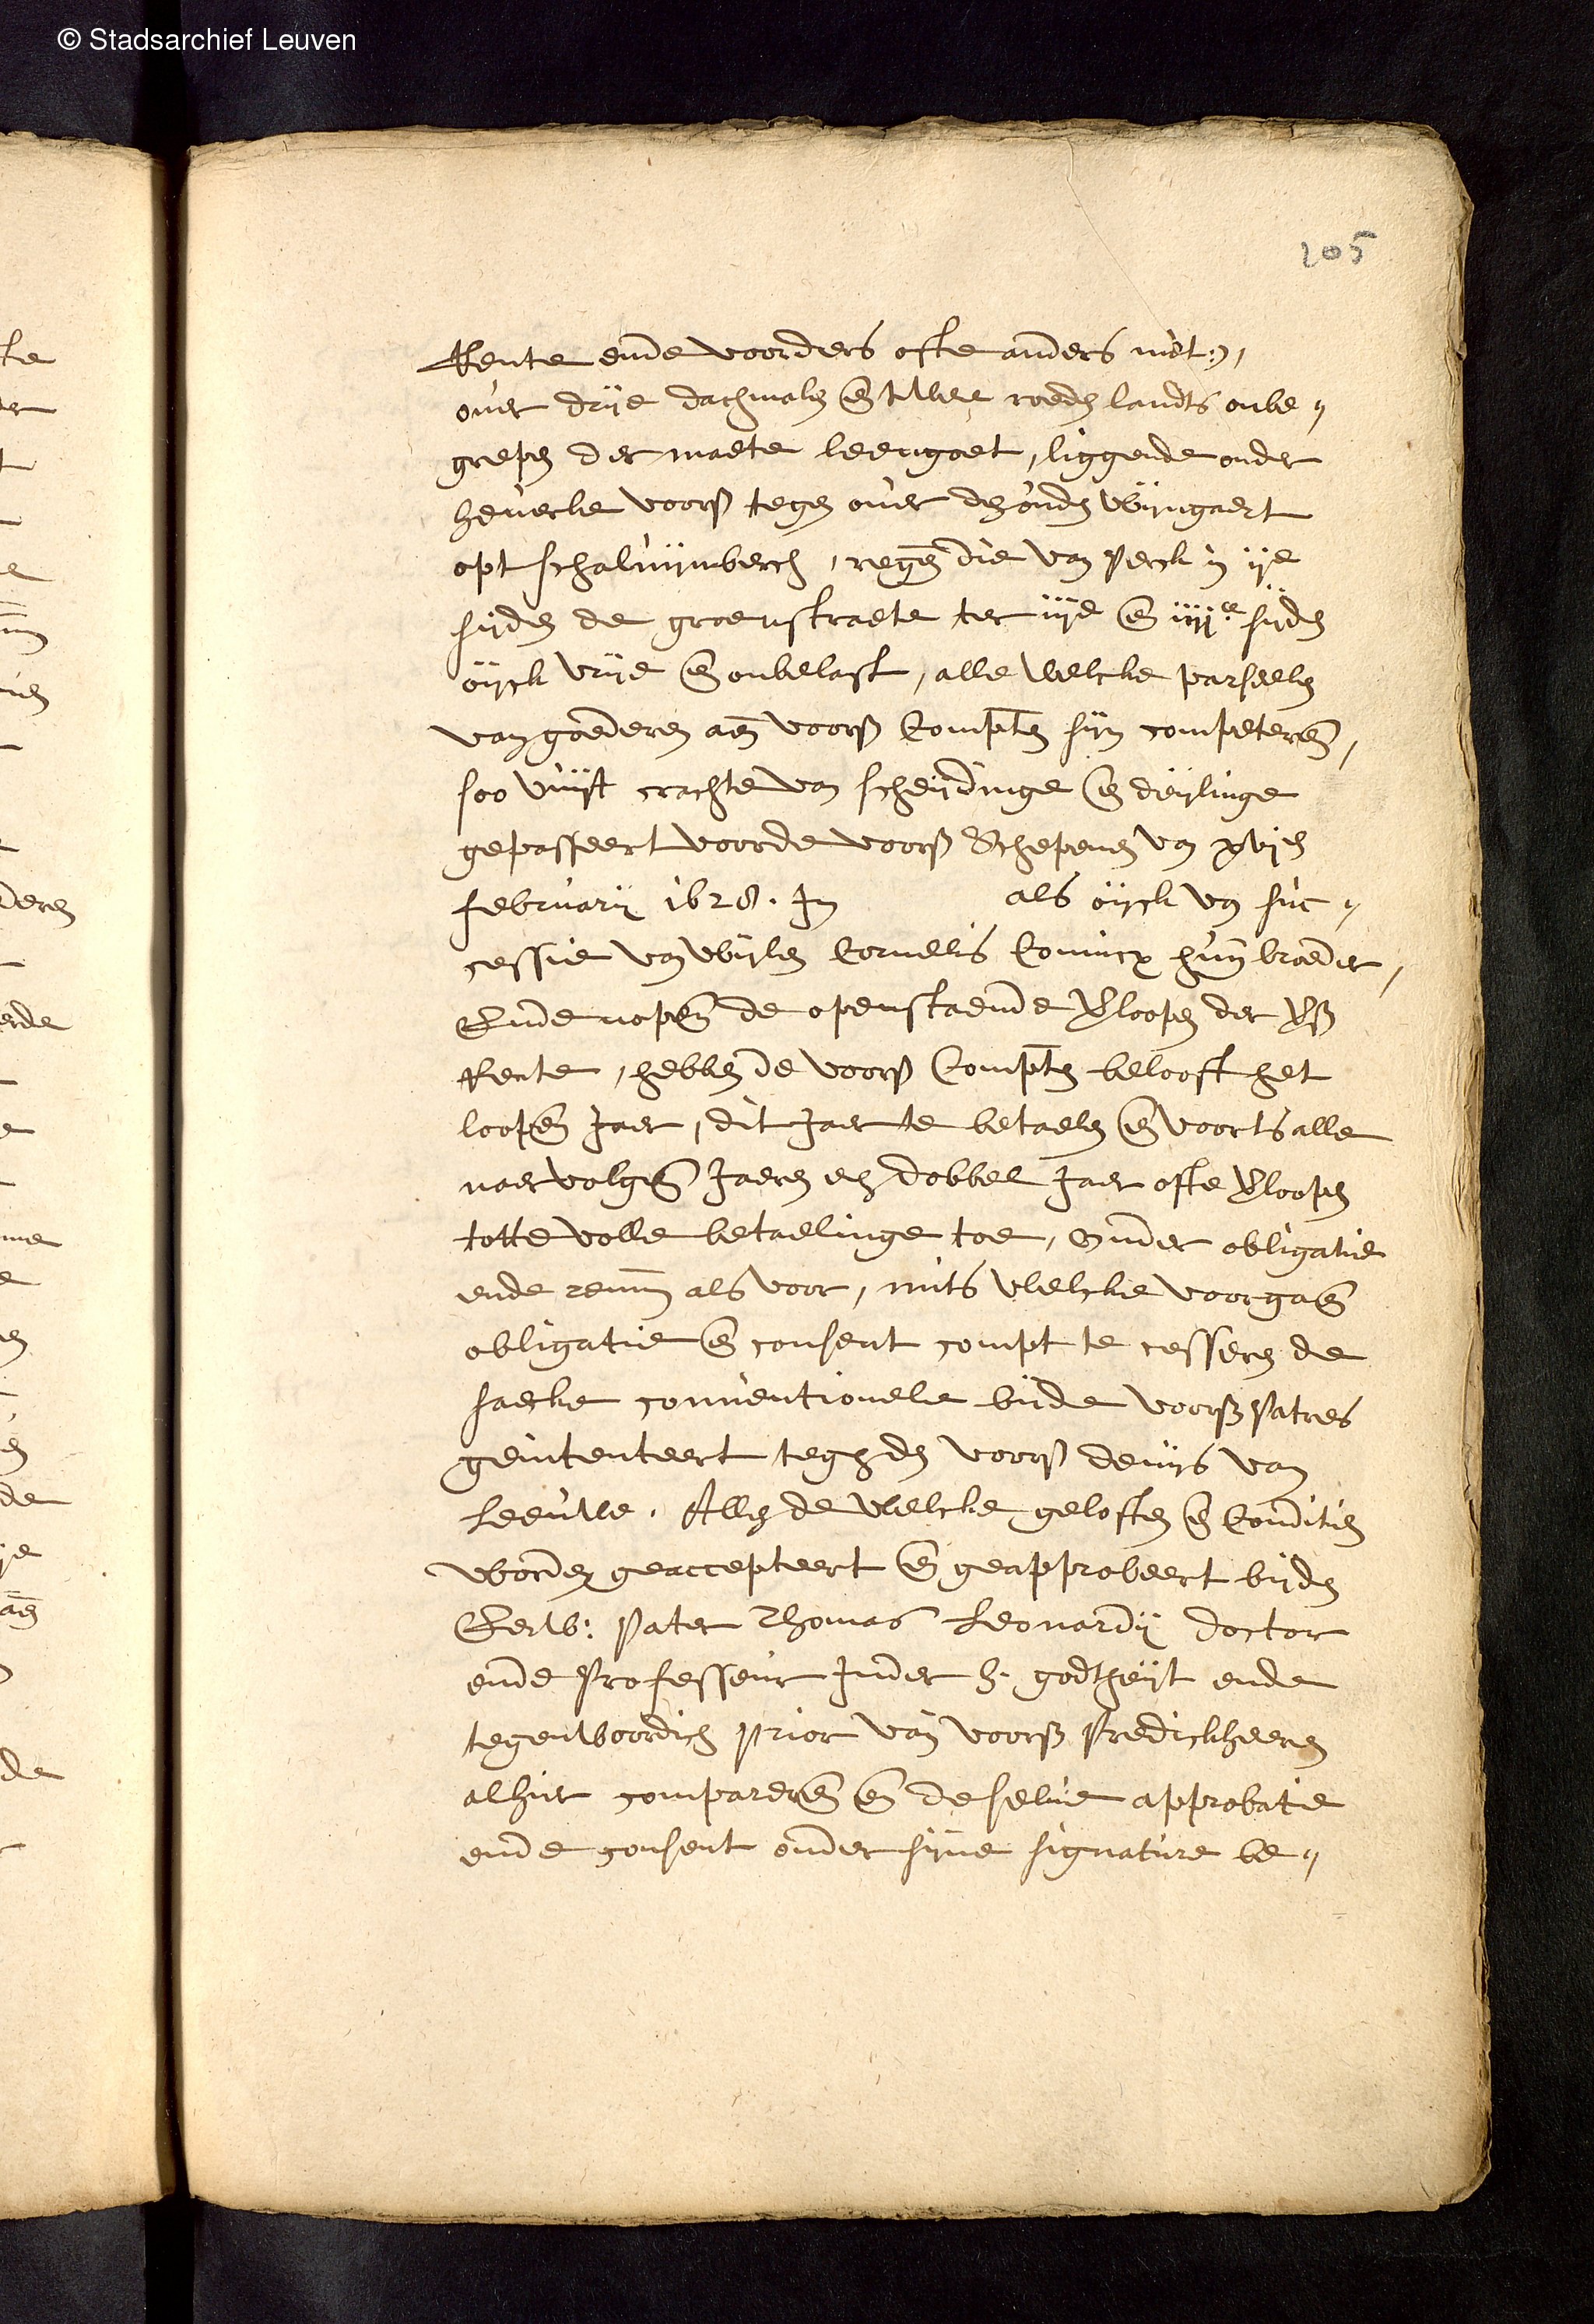 © Stadsarchief Leuven
205
Rente ende voorders ofte anders niet,
over drije dachmalen en twee roeden landts onbe„
grepen der maete leengoet, liggende onder
heverle voors tegen over den ouden Wijngaert
opt schalwijnberch, regen die van Perck in ije
sijden de groenstraete ter iije en iiije sijden
oijck vrije en onbelast, alle welcke parseelen
van goederen aen voors Compten sijn competeren,
soo vuijt crachte van scheijdinge en deijlinge
gepasseert voor de voors Schepenen van xvijen
februarij 1628. In als oijck van suc„
cessie van wijlen Cornelis Coninx hun broeder,
Ende nopen de openstaende Vloopen der Vs
Rente, hebben de voors Compten belooft het
loopen Jaer, dit Jaer te betaelen en voorts alle
naervolgen Jaeren een dobbel Jaer ofte Vloopen
totte volle betaelinge toe, onder obligatie
ende renun als voor, mits welcke voorgaen
obligatie en consent compt te cesseren de
saecke conventionele bijde voors Patres
geintenteert teghen den voors denijs van
Leeuwe. Allen de welcke geloften en Conditien
worden geaccepteert en geapprobeert bijden
Eerw: Pater Thomas Leonardij doctor
ende Professeur Inder h. godtheijt ende
tegenwoordich Prior van voors Predickheeren
alhier compareren en deselve approbatie
ende consent onder sijne signature be„